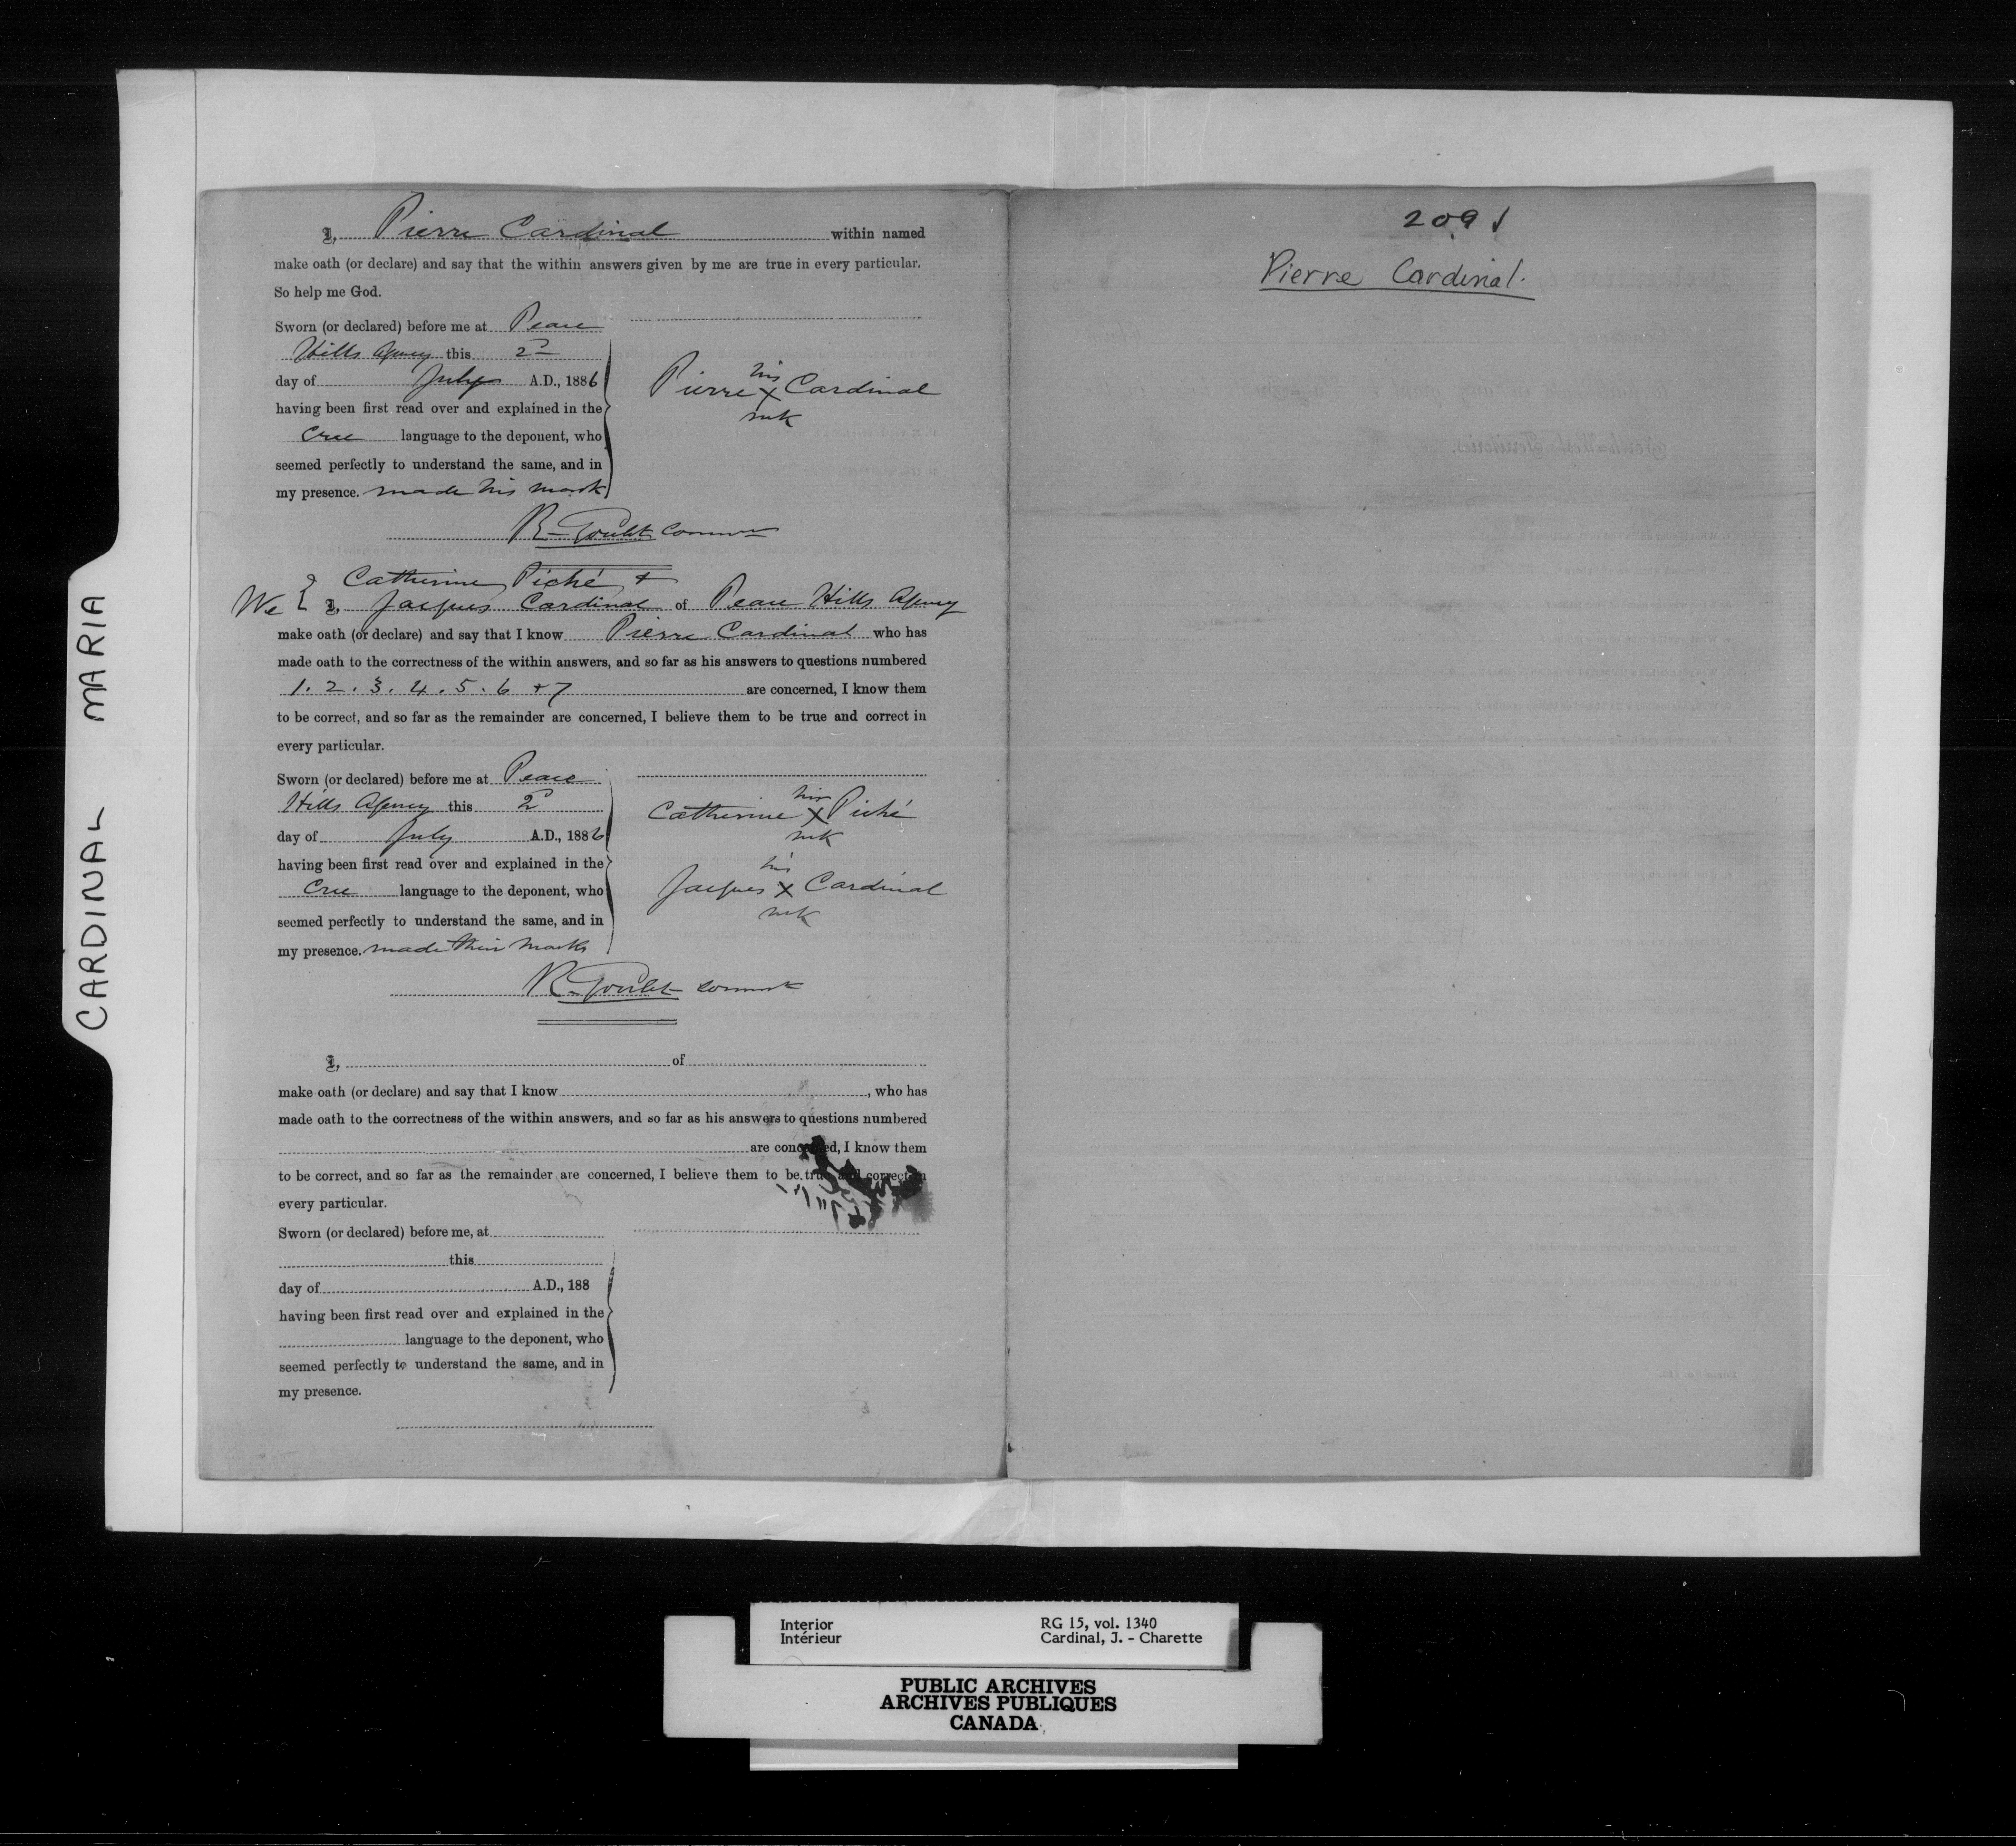 CARDINAL MARIA
I, Pierre Cardinal within named
make oath (or declare) and say that the within answers given by me are true in every particular.
So help me God.
Sworn (or declared) before me at Peace
Hills Agency this 2d
day of July A.D., 1886
having been first read over and explained in the
Cree language to the deponent, who
seemed perfectly to understand the same, and in
my presence. made his mark
his
Pierre X Cardinal
mk
R. Goulet Commr
Catherine Piché +
We { I, Jacques Cardinal of Peace Hills Agency
make oath (or declare) and say that I know Pierre Cardinal who has
made oath to the correctness of the within answers, and so far as his answers to questions numbered
1. 2. 3. 4. 5. 6 + 7 are concerned, I know them
to be correct, and so far as the remainder are concerned, I believe them to be true and correct in
every particular.
Sworn (or declared) before me at Peace
Hills Agency this 2d
day of July A.D., 1886
having been first read over and explained in the
Cree language to the deponent, who
seemed perfectly to understand the same, and in
my presence. made their marks
his
Catherine X Piché
mk
his
Jacques X Cardinal
mk
R. Goulet Commr
I, of
make oath (or declare) and say that I know , who has
made oath to the correctness of the within answers, and so far as his answers to questions numbered
are concerned, I know them
to be correct, and so far as the remainder are concerned, I believe them to be true and correct in
every particular.
Sworn (or declared) before me, at
this
day of A.D., 188
having been first read over and explained in the
language to the deponent, who
seemed perfectly to understand the same, and in
my presence.
209
Pierre Cardinal.
Interior
Intérieur
RG 15, vol. 1340
Cardinal, J. - Charette
PUBLIC ARCHIVES
ARCHIVES PUBLIQUES
CANADA